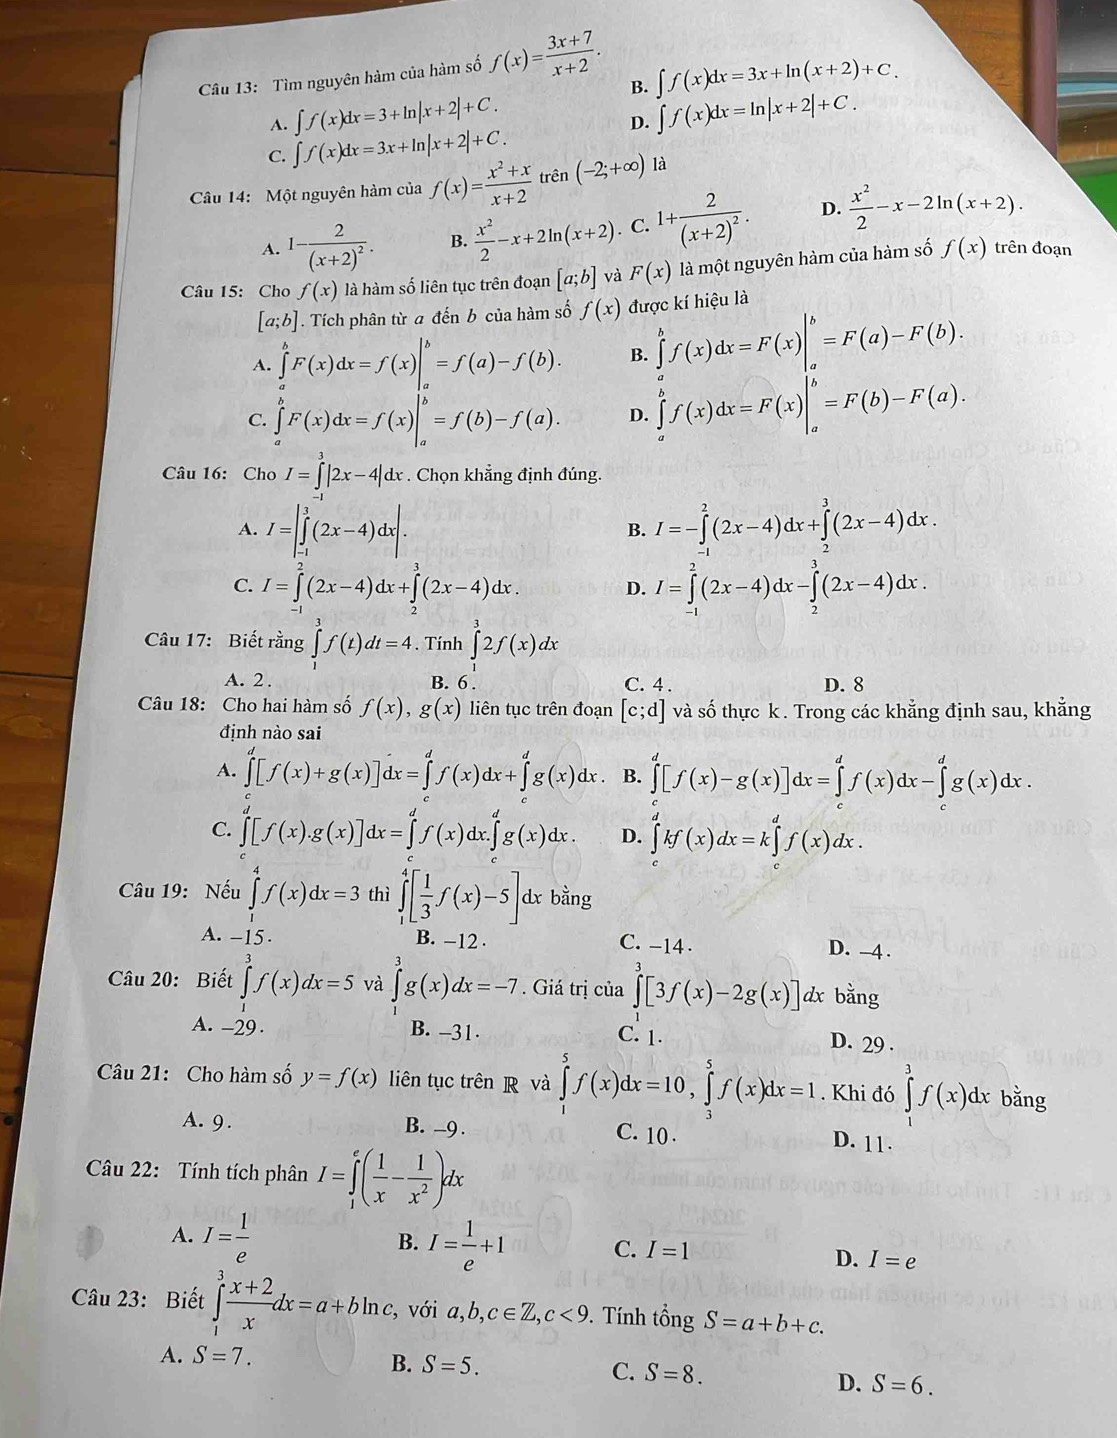 Câu 13: Tìm nguyên hàm của hàm số f(x) = (3x+7)/(x+2).
A. ∫f(x)dx = 3+ln|x+2|+C.
B. ∫f(x)dx = 3x+ln(x+2)+C.
C. ∫f(x)dx = 3x+ln|x+2|+C.
D. ∫f(x)dx = ln|x+2|+C.
Câu 14: Một nguyên hàm của f(x) = (x²+x)/(x+2) trên (-2;+∞) là
A. 1-2/(x+2)². B. x²/2-x+2ln(x+2). C. 1+2/(x+2)². D. x²/2-x-2ln(x+2).
Câu 15: Cho f(x) là hàm số liên tục trên đoạn [a;b] và F(x) là một nguyên hàm của hàm số f(x) trên đoạn
[a;b]. Tích phân từ a đến b của hàm số f(x) được kí hiệu là
A. ∫_a^b F(x)dx = f(x)|_a^b = f(a)-f(b). B. ∫_a^b f(x)dx = F(x)|_a^b = F(a)-F(b).
C. ∫_a^b F(x)dx = f(x)|_a^b = f(b)-f(a). D. ∫_a^b f(x)dx = F(x)|_a^b = F(b)-F(a).
Câu 16: Cho I = ∫_{-1}^3 |2x-4|dx. Chọn khẳng định đúng.
A. I = |∫_{-1}^3 (2x-4)dx|. B. I = -∫_{-1}^2 (2x-4)dx+∫_2^3 (2x-4)dx.
C. I = ∫_{-1}^2 (2x-4)dx+∫_2^3 (2x-4)dx. D. I = ∫_{-1}^2 (2x-4)dx-∫_2^3 (2x-4)dx.
Câu 17: Biết rằng ∫_1^3 f(t)dt = 4. Tính ∫_1^3 2f(x)dx
A. 2. B. 6. C. 4. D. 8
Câu 18: Cho hai hàm số f(x), g(x) liên tục trên đoạn [c;d] và số thực k. Trong các khẳng định sau, khẳng
định nào sai
A. ∫_c^d [f(x)+g(x)]dx = ∫_c^d f(x)dx+∫_c^d g(x)dx. B. ∫_c^d [f(x)-g(x)]dx = ∫_c^d f(x)dx-∫_c^d g(x)dx.
C. ∫_c^d [f(x).g(x)]dx = ∫_c^d f(x)dx.∫_c^d g(x)dx. D. ∫_c^d kf(x)dx = k∫_c^d f(x)dx.
Câu 19: Nếu ∫_1^4 f(x)dx = 3 thì ∫_1^4 [1/3 f(x)-5]dx bằng
A. -15. B. -12. C. -14. D. -4.
Câu 20: Biết ∫_1^3 f(x)dx = 5 và ∫_1^3 g(x)dx = -7. Giá trị của ∫_1^3 [3f(x)-2g(x)]dx bằng
A. -29. B. -31. C. 1. D. 29.
Câu 21: Cho hàm số y = f(x) liên tục trên ℝ và ∫_1^5 f(x)dx = 10, ∫_3^5 f(x)dx = 1. Khi đó ∫_1^3 f(x)dx bằng
A. 9. B. -9. C. 10. D. 11.
Câu 22: Tính tích phân I = ∫_1^e (1/x - 1/x²)dx
A. I = 1/e B. I = 1/e+1 C. I = 1 D. I = e
Câu 23: Biết ∫_1^3 (x+2)/x dx = a+b ln c, với a,b,c∈ℤ, c<9. Tính tổng S = a+b+c.
A. S = 7. B. S = 5. C. S = 8. D. S = 6.